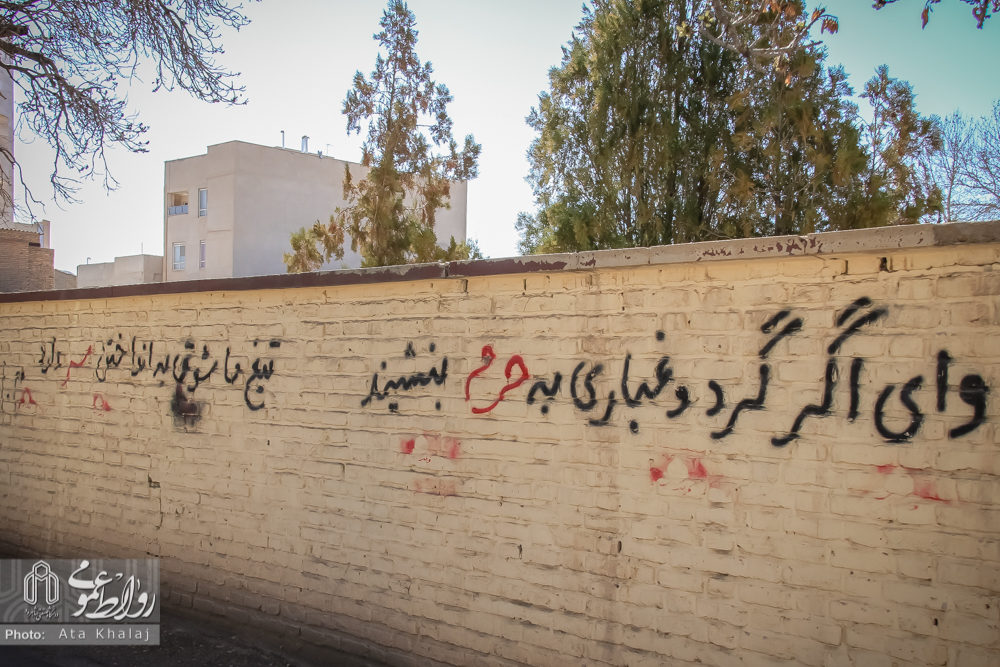 وای اگر گرد و غباری به حرم بنشیند
تیغ ما شوق به انداختن سر دارد
روابط عمومی
Photo: Ata Khalaj